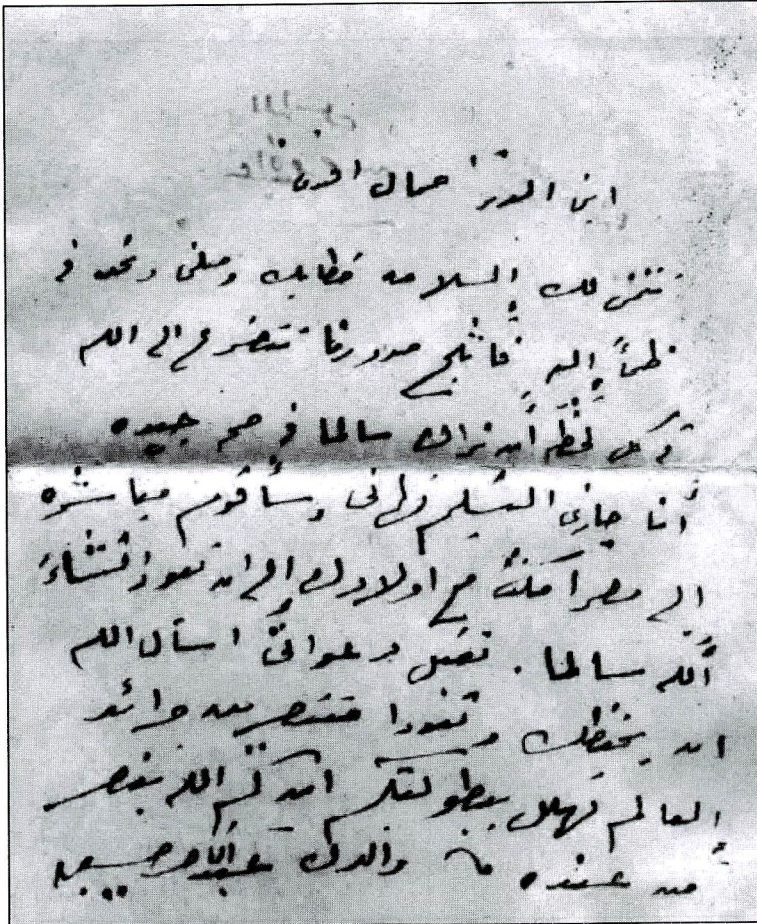 ابنى العزيز جمال افندى
نتمنى لك السلامه خطابك وصلنى ونحن فى
ظمأ إليه فأثلج صدورنا نتضرع الى الله
فى كل لحظة أن نراك سالما فى صحه جيده
أنا جارى التسليم نهائى وسأقوم مباشره
إلى مصر أمكث مع اولادك إلى ان تعود انشاء
الله سالما . تقبل دعواتى اسأل الله
ان يحفظك وتعودا منتصرين جرائد
العالم تهلل ببطولتكم امدكم الله بنصر
من عنده والدك عبد الناصر حسين